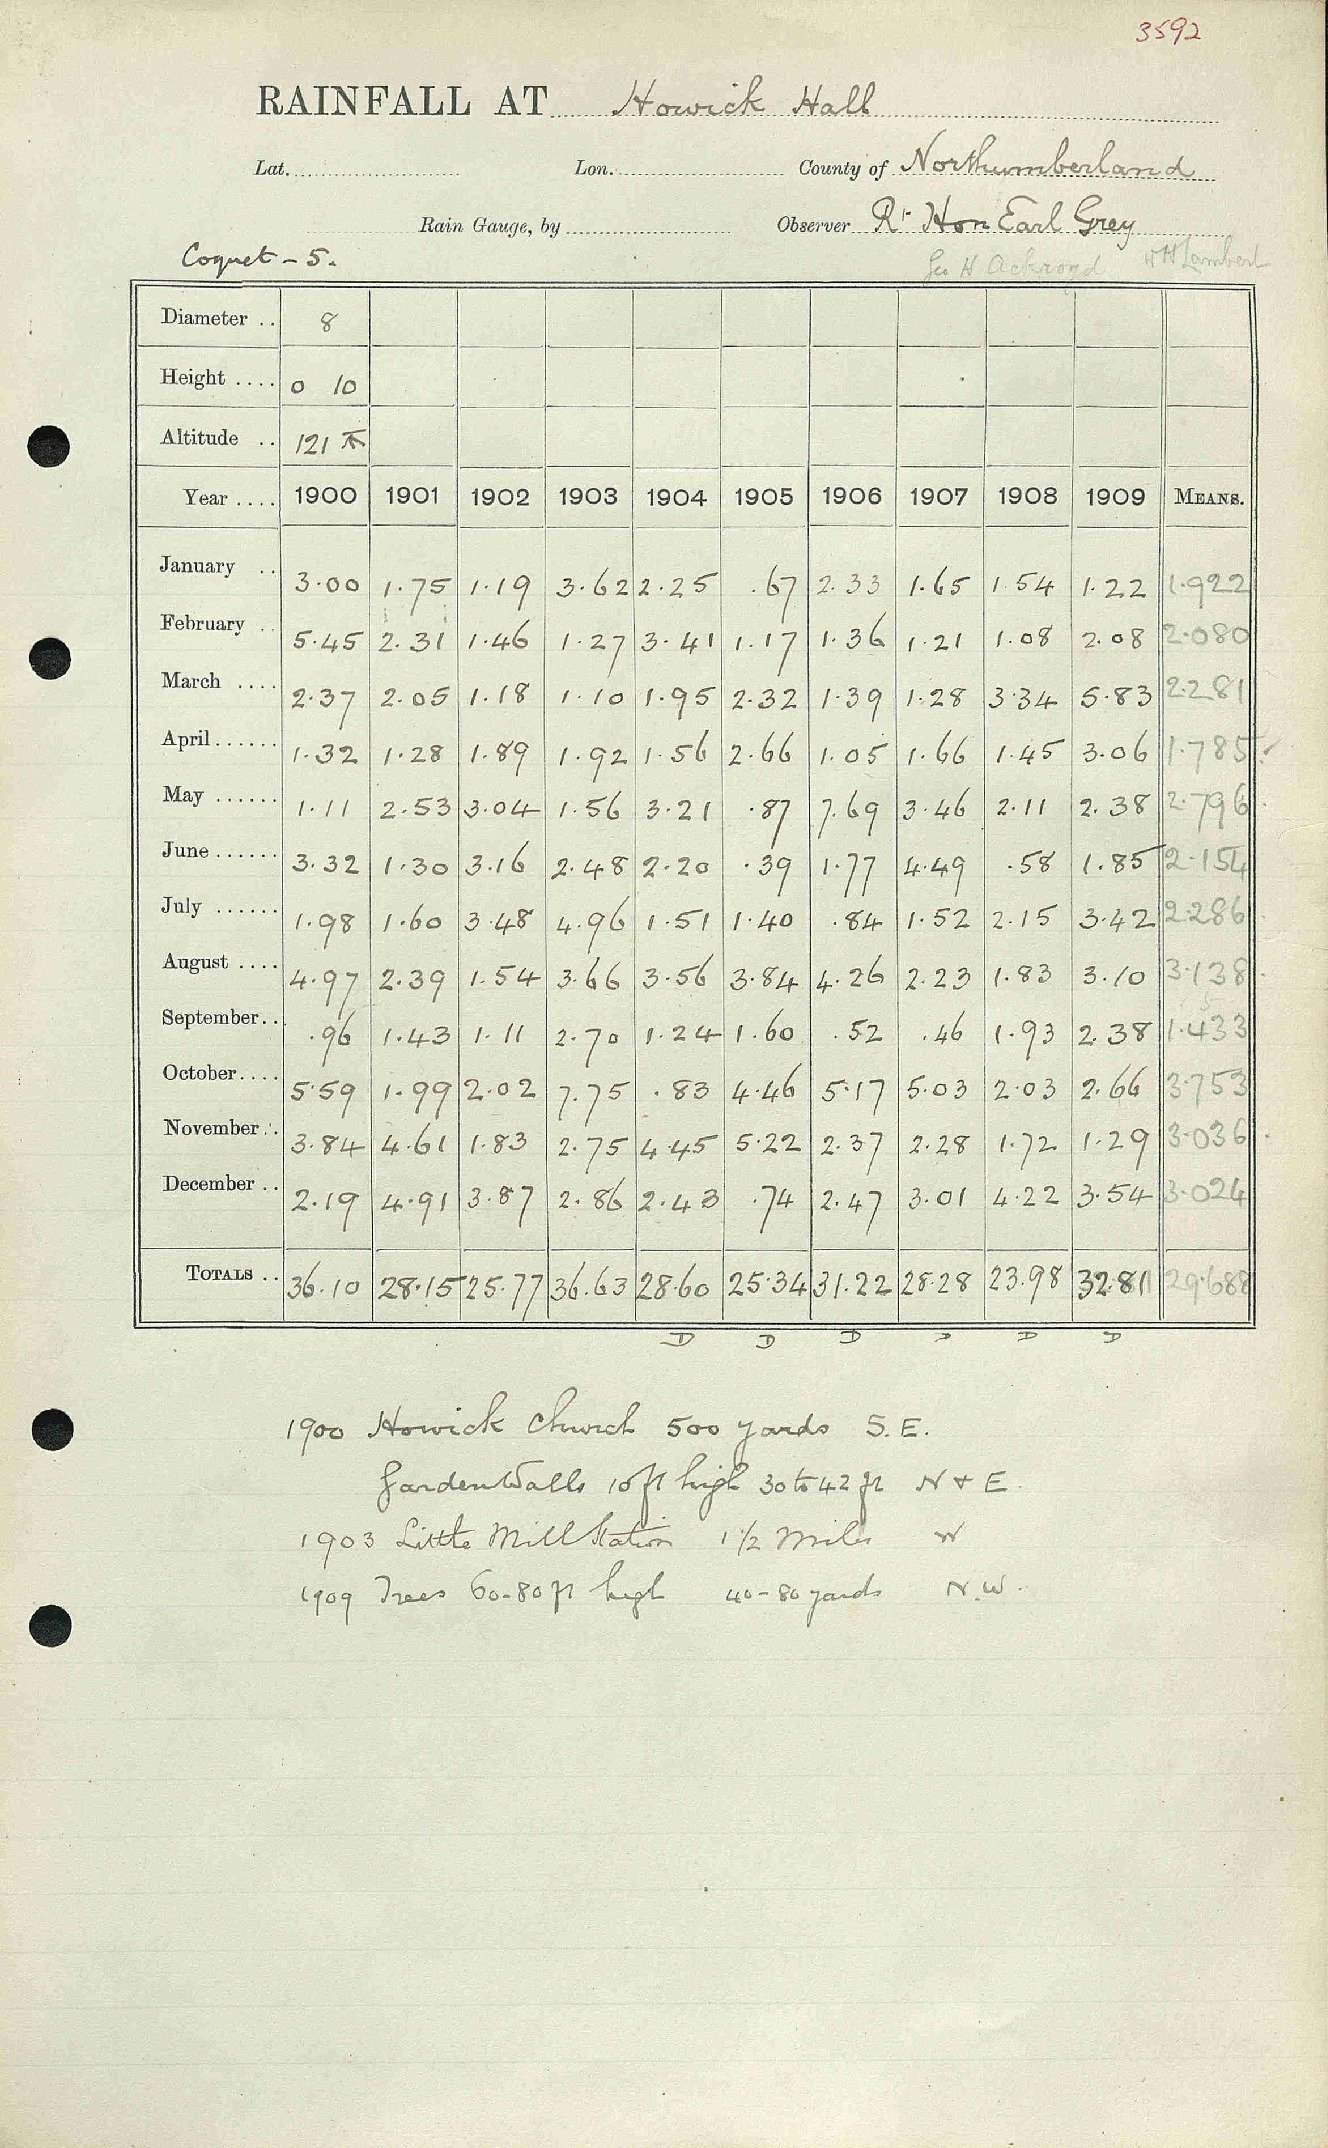 3592
RAINFALL AT Howick Hall
Lat. Lon. County of Northumberland
Rain Gauge, by Observer Rt Hon Earl Grey
Coquet - 5. Geo H Ackroyd W H Lambert
Diameter .. 8
Height .... 0 10
Altitude .. 121
Year .... 1900 1901 1902 1903 1904 1905 1906 1907 1908 1909 MEANS.
January .. 3.00 1.75 1.19 3.62 2.25 .67 2.33 1.65 1.54 1.22 1.922
February .. 5.45 2.31 1.46 1.27 3.41 1.17 1.36 1.21 1.08 2.08 2.080
March .... 2.37 2.05 1.18 1.10 1.95 2.32 1.39 1.28 3.34 5.83 2.281
April...... 1.32 1.28 1.89 1.92 1.56 2.66 1.05 1.66 1.45 3.06 1.785
May ...... 1.11 2.53 3.04 1.56 3.21 .87 7.69 3.46 2.11 2.38 2.796
June...... 3.32 1.30 3.16 2.48 2.20 .39 1.77 4.49 .58 1.85 2.154
July ...... 1.98 1.60 3.48 4.96 1.51 1.40 .84 1.52 2.15 3.42 2.286
August .... 4.97 2.39 1.54 3.66 3.56 3.84 4.26 2.23 1.83 3.10 3.138
September.. .96 1.43 1.11 2.70 1.24 1.60 .52 .46 1.93 2.38 1.433
October.... 5.59 1.99 2.02 7.75 .83 4.46 5.17 5.03 2.03 2.66 3.753
November .. 3.84 4.61 1.83 2.75 4.45 5.22 2.37 2.28 1.72 1.29 3.036
December .. 2.19 4.91 3.87 2.86 2.43 .74 2.47 3.01 4.22 3.54 3.024
TOTALS .. 36.10 28.15 25.77 36.63 28.60 25.34 31.22 28.28 23.98 32.81 29.688
D D D D D D
1900 Howick Church 500 yards S.E.
Garden Walls 10 ft high 30 to 42 ft N & E.
1903 Little Mill Station 1 1/2 Miles W
1909 Trees 60-80 ft high 40-80 yards N.W.